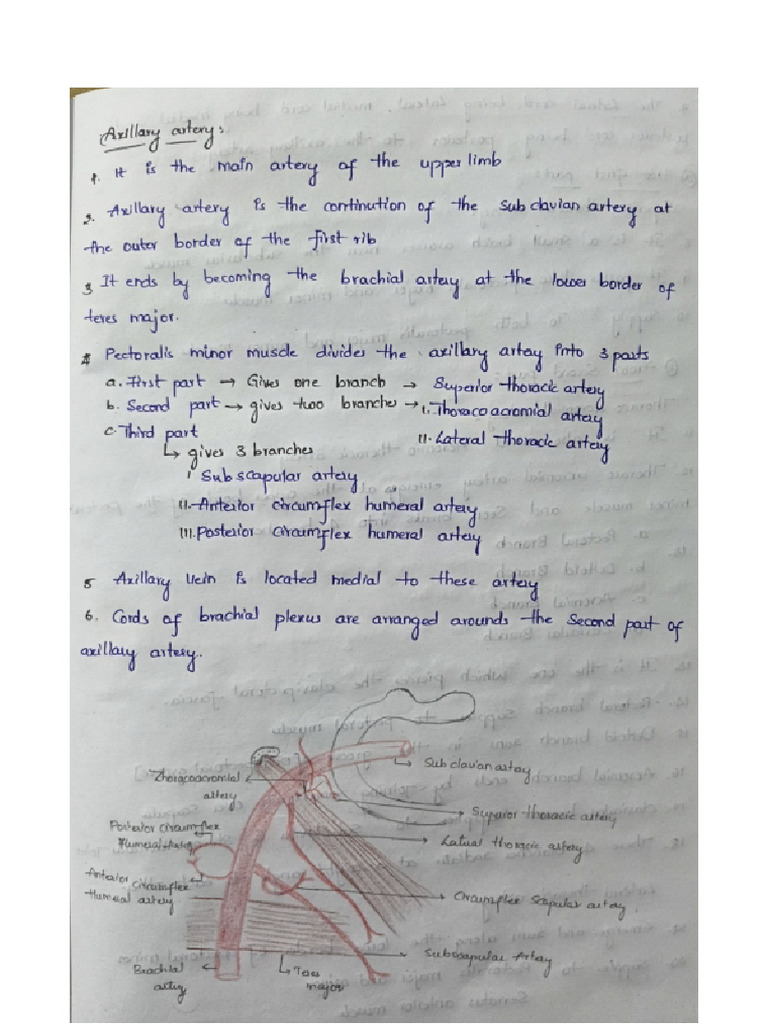 Axillary artery:
1. It is the main artery of the upper limb
2. Axillary artery is the contin​ution of the Sub clavian artery at
the outer border of the first rib
3 It ends by becoming the brachial artery at the lower border of
teres major.
4 Pectoralis minor muscle divides the axillary artay into 3 parts
a. First part → Gives one branch → Superior thoracic artery
b. Second part → gives two branches → i. Thoracoacromial artery
c. Third part ii. Lateral thoracic artery
↳ gives 3 branches
i Sub scapular artery
ii. Anterior circumflex humeral artery
iii. Posterior circumflex humeral artery
5 Axillary vein is located medial to these artery
6. Cords of brachial plexus are arranged arounds the Second part of
axillary artery.
Sub clavian artay
Thoracoacromial
artery
Superior thoracic artery
Posterior circumflex
Humeral artery
Latual thoracic artery
Anterior circumflex
Humeral artery
Circumflex Scapular artay
Subscapular Artay
Brachial
artey
Teres
major